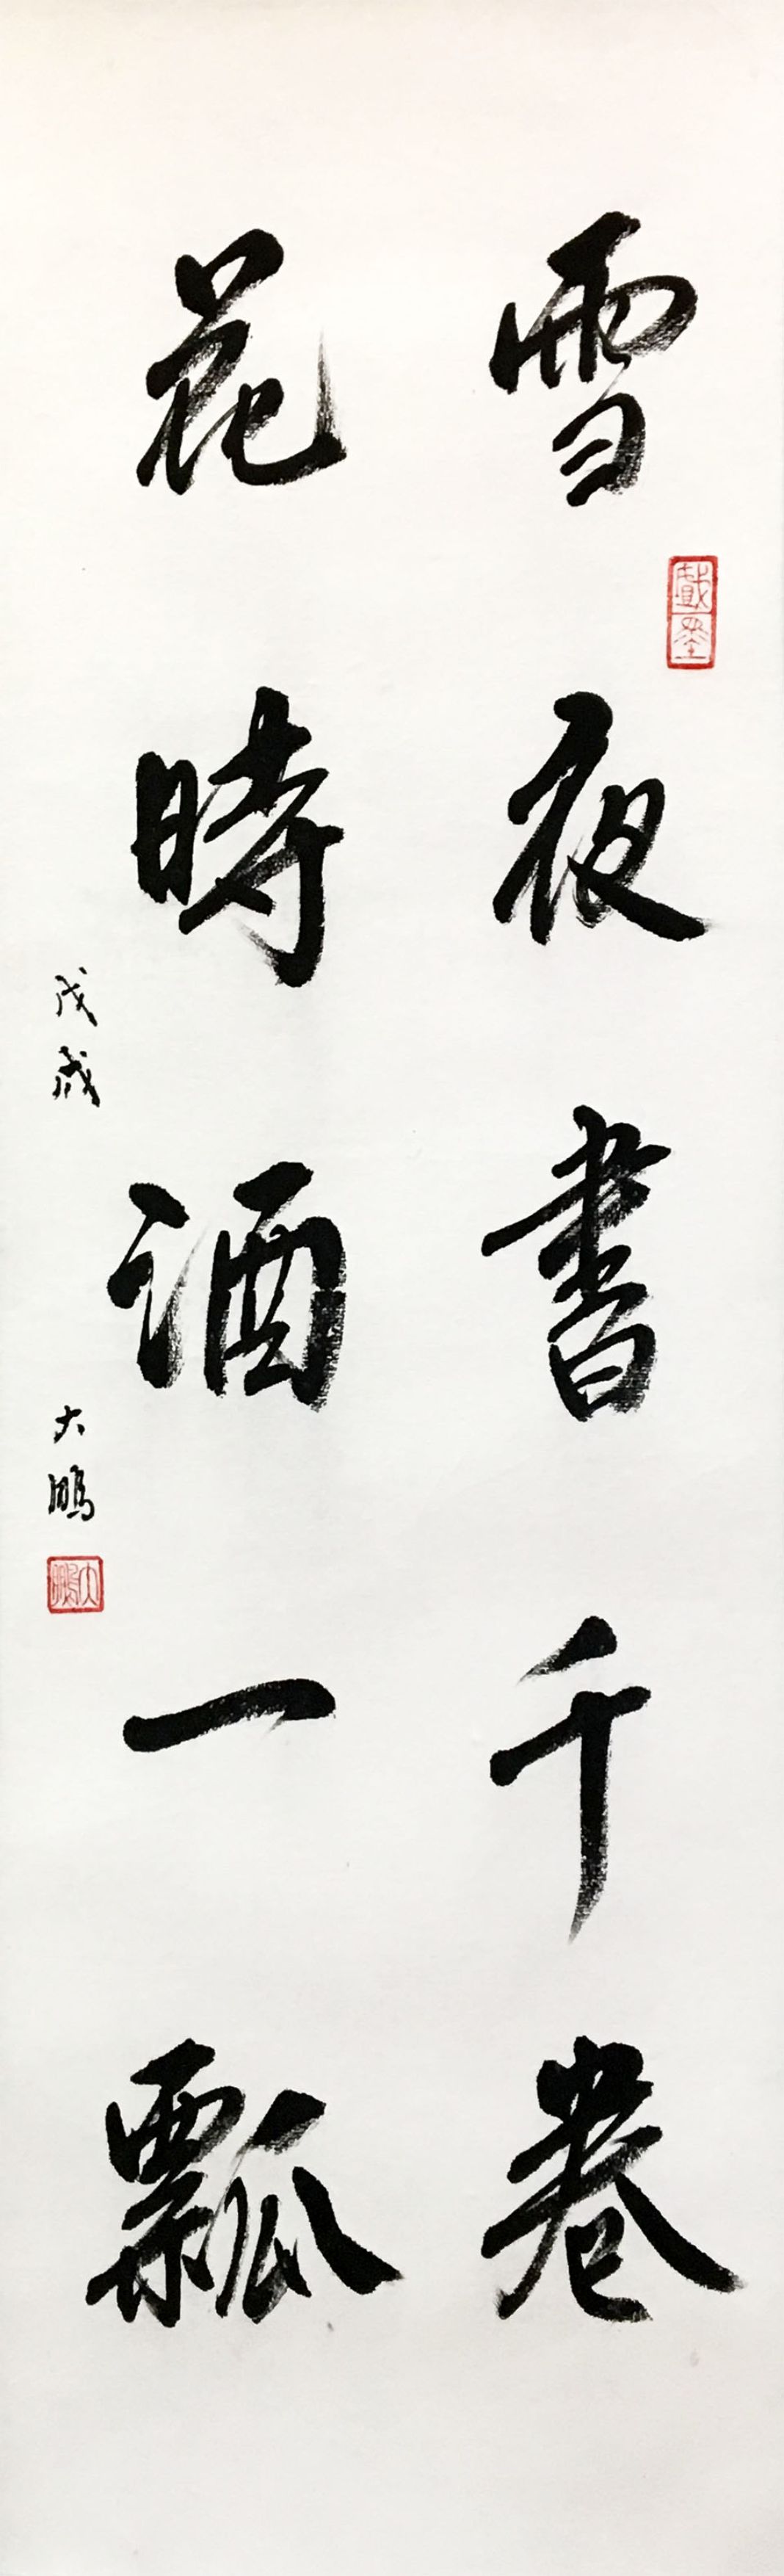 雪夜書千卷
花時酒一瓢
戊戌 大鵬
戲墨
大鵬